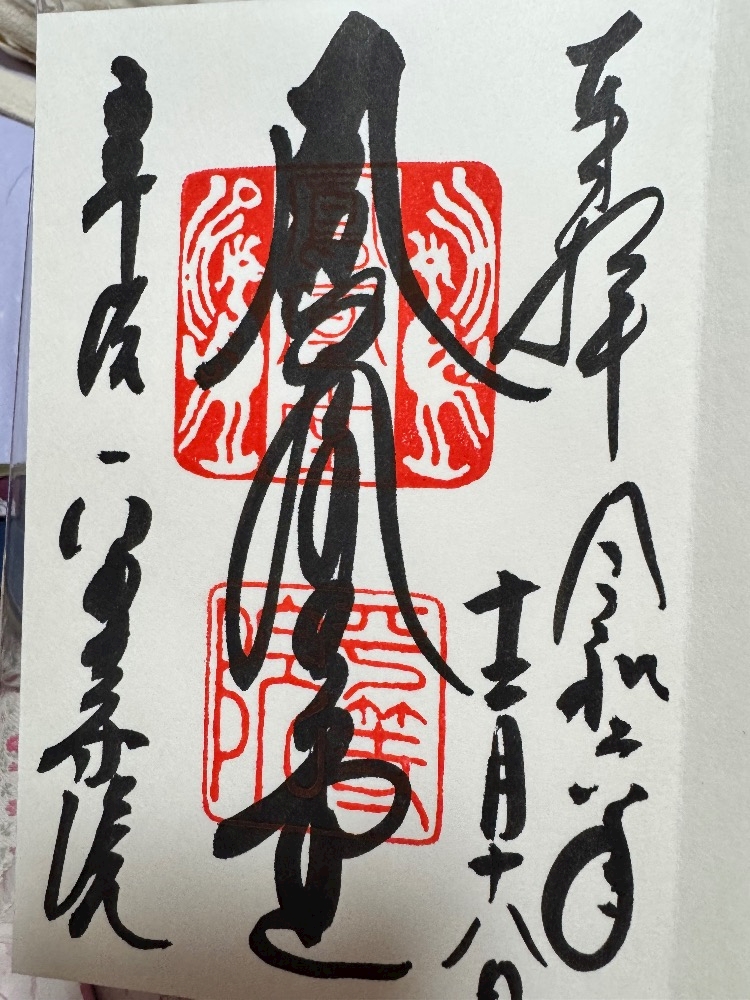 奉拝
令和六年
十二月十八日
鳳凰堂
宇治
平等院
鳳凰堂
平等院